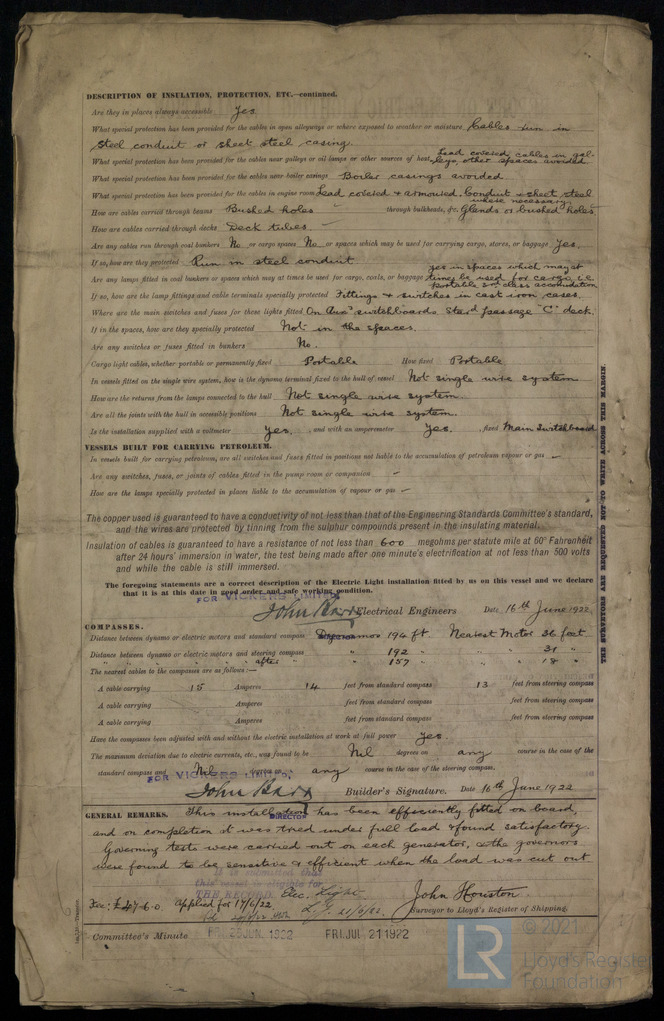 DESCRIPTION OF INSULATION, PROTECTION, ETC.—continued.
Are they in places always accessible Yes
What special protection has been provided for the cables in open alleyways or where exposed to weather or moisture Cables run in
steel conduit or sheet steel casing.
What special protection has been provided for the cables near galleys or oil lamps or other sources of heat Lead covered cables in gal-
leys, other spaces avoided
What special protection has been provided for the cables near boiler casings Boiler casings avoided
What special protection has been provided for the cables in engine room Lead covered & armoured. Conduit & sheet steel
where necessary
How are cables carried through beams Bushed holes — through bulkheads, &c. Glands or bushed holes
How are cables carried through decks Deck tubes. —
Are any cables run through coal bunkers No or cargo spaces No or spaces which may be used for carrying cargo, stores, or baggage Yes.
If so, how are they protected Run in steel conduit
Are any lamps fitted in coal bunkers or spaces which may at times be used for cargo, coals, or baggage yes in spaces which may at
times be used for cargo i.e.
portable 3rd class accomodation
If so, how are the lamp fittings and cable terminals specially protected Fittings & switches in cast iron cases.
Where are the main switches and fuses for these lights fitted On Aux'y switchboards, Star'd passage "C" deck.
If in the spaces, how are they specially protected Not in the spaces.
Are any switches or fuses fitted in bunkers No.
Cargo light cables, whether portable or permanently fixed Portable How fixed Portable
In vessels fitted on the single wire system, how is the dynamo terminal fixed to the hull of vessel Not single wire system
How are the returns from the lamps connected to the hull Not single wire system
Are all the joints with the hull in accessible positions Not single wire system.
Is the installation supplied with a voltmeter Yes. , and with an amperemeter Yes. , fixed Main Switchboard
VESSELS BUILT FOR CARRYING PETROLEUM.
In vessels built for carrying petroleum, are all switches and fuses fitted in positions not liable to the accumulation of petroleum vapour or gas —
Are any switches, fuses, or joints of cables fitted in the pump room or companion —
How are the lamps specially protected in places liable to the accumulation of vapour or gas —
The copper used is guaranteed to have a conductivity of not less than that of the Engineering Standards Committee's standard,
and the wires are protected by tinning from the sulphur compounds present in the insulating material.
Insulation of cables is guaranteed to have a resistance of not less than 600 megohms per statute mile at 60° Fahrenheit
after 24 hours' immersion in water, the test being made after one minute's electrification at not less than 500 volts
and while the cable is still immersed.
The foregoing statements are a correct description of the Electric Light installation fitted by us on this vessel and we declare
that it is at this date in good order and safe working condition.
FOR VICKERS LIMITED,
John Barr Electrical Engineers Date 16th June 1922.
COMPASSES.
Distance between dynamo or electric motors and standard compass Dynamos 194 ft Nearest Motor 36 feet
Distance between dynamo or electric motors and steering compass " 192 " " " 31 "
" " " " " " after " 157 " " " 18 "
The nearest cables to the compasses are as follows:—
A cable carrying 15 Amperes 14 feet from standard compass 13 feet from steering compass
A cable carrying Amperes feet from standard compass feet from steering compass
A cable carrying Amperes feet from standard compass feet from steering compass
Have the compasses been adjusted with and without the electric installation at work at full power Yes.
The maximum deviation due to electric currents, etc., was found to be Nil degrees on any course in the case of the
standard compass and Nil degrees on any course in the case of the steering compass.
FOR VICKERS LIMITED,
John Barr Builder's Signature. Date 16th June 1922
DIRECTOR
GENERAL REMARKS. This installation has been efficiently fitted on board,
and on completion it was tried under full load & found satisfactory.
Governing tests were carried out on each generator, & the governors
were found to be sensitive & efficient when the load was cut out
It is submitted that
this vessel is eligible for
THE RECORD Elec. Light
Fee: £47.6.0 Applied for 17/6/22
21/6/22
John Houston.
Surveyor to Lloyd's Register of Shipping.
Committee's Minute FRI. 23 JUN. 1922 FRI. JUL 21 1922
THE SURVEYORS ARE REQUESTED NOT TO WRITE ACROSS THIS MARGIN.
LR
© 2021
Lloyd's Register
Foundation